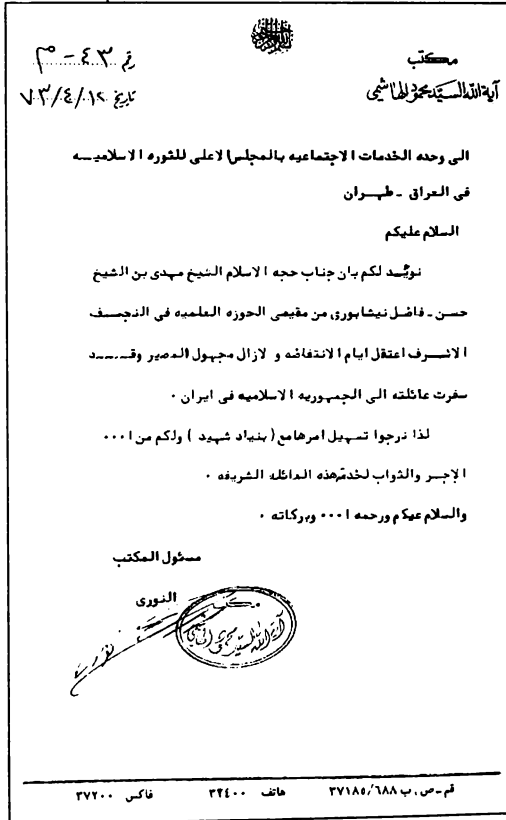 مكتب
آية الله السيد محمود الهاشمي
رقم ٤٣ - م
تاريخ ٧٣/٤/١٢
الى وحده الخدمات الاجتماعيه بالمجلس الاعلى للثوره الاسلاميــه
فى العراق - طهــران
السلام عليكم
نويٌـد لكم بان جناب حجه الاسلام الشيخ مهدى بن الشيخ
حسن - فاضل نيشابورى من مقيمى الحوزه العلميه فى النجــف
الاشــرف اعتقل ايام الانتفاضه و لازال مجهول المصير وقــــد
سفرت عائلته الى الجمهوريه الاسلاميه فى ايران ٠
لذا نرجوا تسهيل امرها مع ( بنياد شهيد ) ولكم من ا٠٠٠
الاجــر والثواب لخدمة هذه العائله الشريفه ٠
والسلام عيكم ورحمه ا٠٠٠ وبركاته ٠
مسئول المكتب
النورى
مكتب
آية الله السيد محمود الهاشمي
قم - ص . ب ٣٧١٨٥/٦٨٨ هاتف ٣٢٤٠٠ فاكس ٣٧٢٠٠